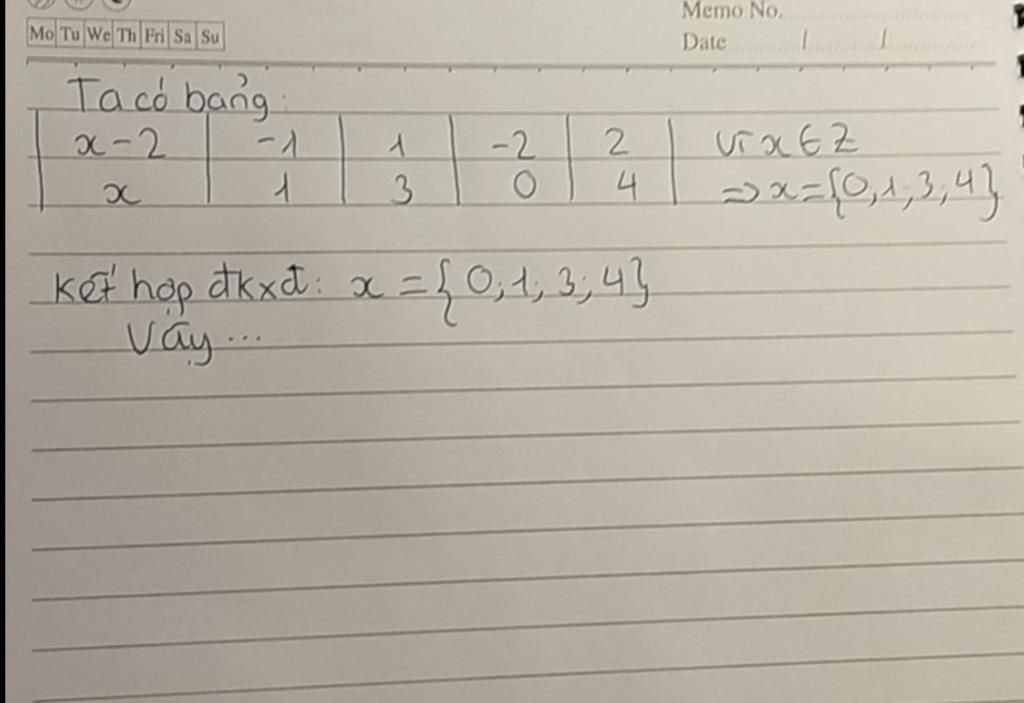 Memo No.
Mo Tu We Th Fri Sa Su
Date / /
Ta có bảng:
x-2 -1 1 -2 2 vì x∈Z
x 1 3 0 4 => x={0,1;3;4}
kết hợp đkxđ: x={0;1;3;4}
Vậy...